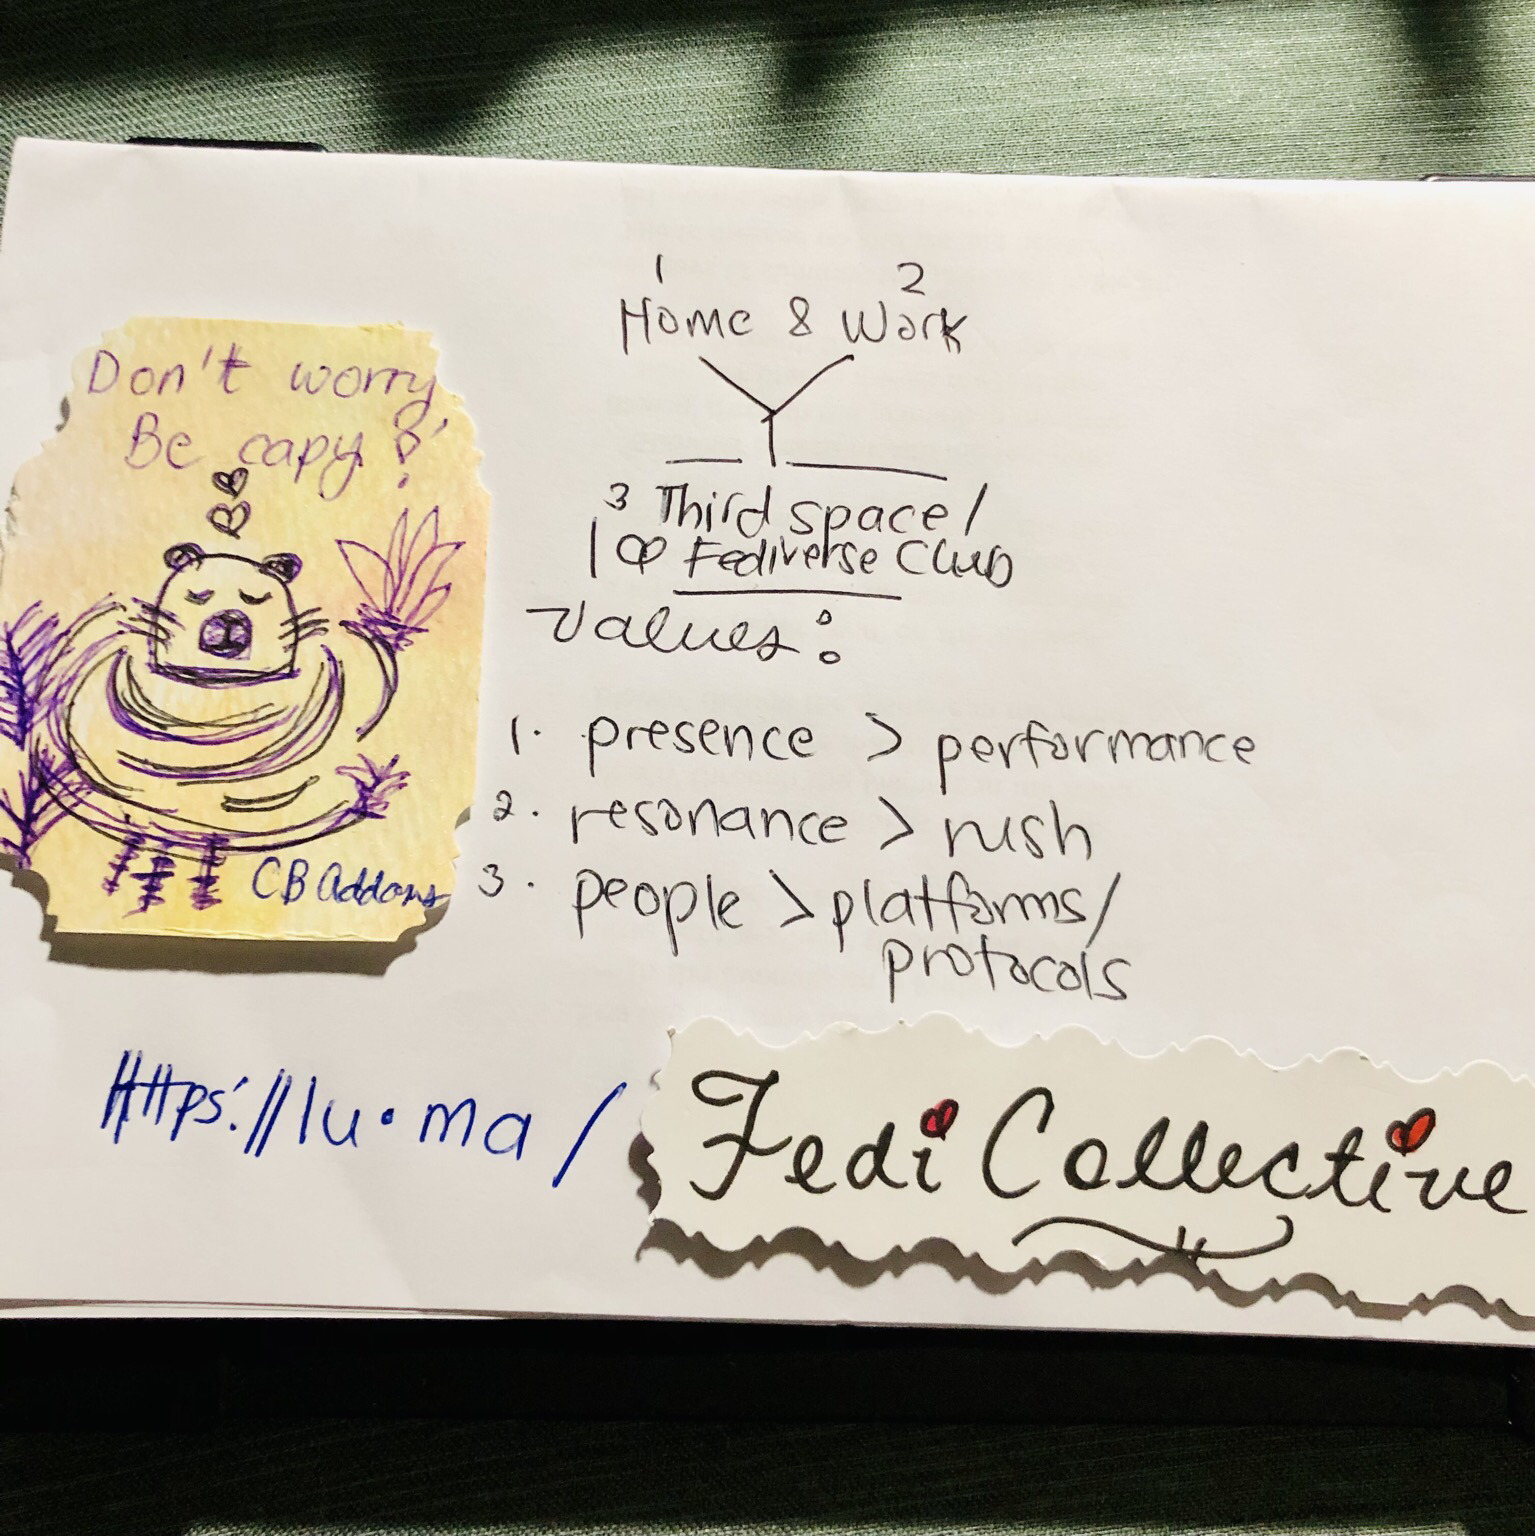 Don't worry,
Be capy!
CB Addams
1 2
Home & Work
3 Third space /
I ♡ Fediverse Club
Values:
1. presence > performance
2. resonance > rush
3. people > platforms/
protocols
Https://lu.ma/
Fedi Collective